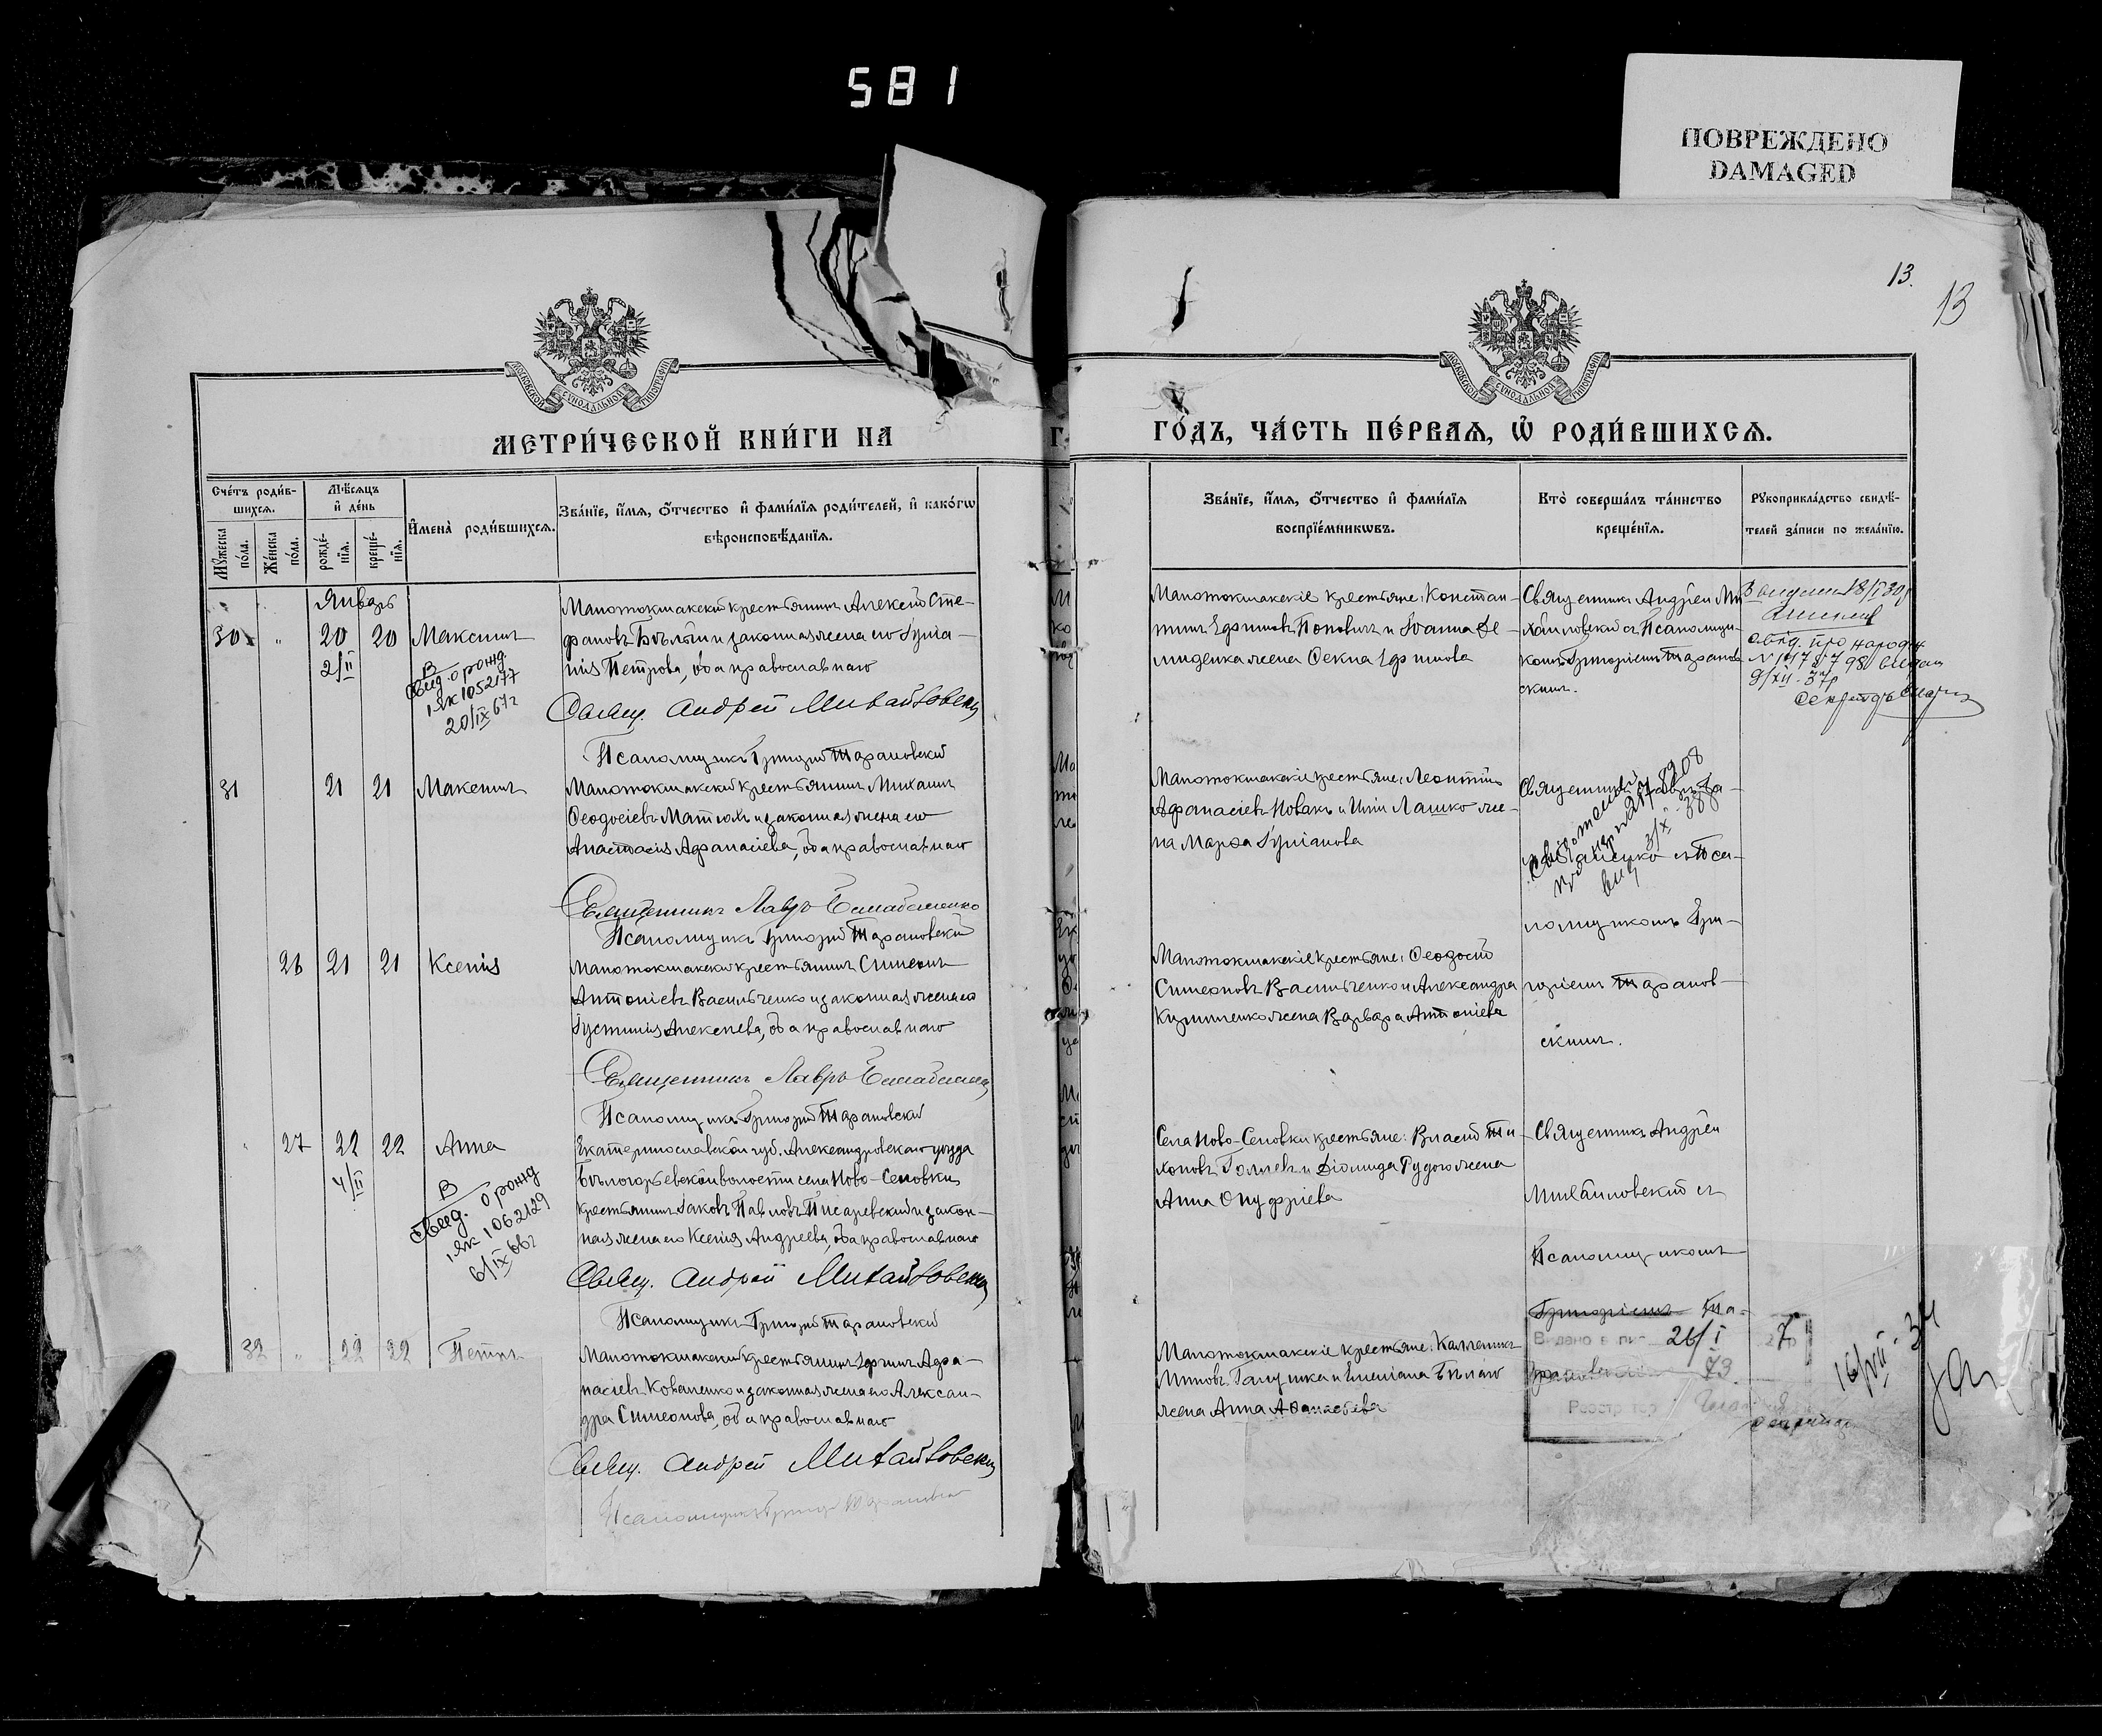 581
ПОВРЕЖДЕНО
DAMAGED
13.
13
МОСКОВСКОЙ СѴНОДАЛЬНОЙ ТИПОГРАФІИ
МОСКОВСКОЙ СѴНОДАЛЬНОЙ ТИПОГРАФІИ
МЕТРИ́ЧЕСКОЙ КНИ́ГИ НА
ГО́ДЪ, ЧА́СТЬ ПЕ́РВАѦ, Ѡ҆ РОДИ́ВШИХСѦ.
Сче́тъ роди́в-
шихсѧ.
Мѣ́сѧцъ
и҆ де́нь
Мꙋ́жеска
по́ла.
Же́нска
по́ла.
рожде́-
нїѧ.
креще́-
нїѧ.
И҆мена̀ роди́вшихсѧ.
Зва́нїе, и҆́мѧ, ѻ҆́тчество и҆ фами́лїѧ роди́телей, и҆ како́гѡ
вѣроисповѣ́данїѧ.
Зва́нїе, и҆́мѧ, ѻ҆́тчество и҆ фами́лїѧ
воспрїе́мникѡвъ.
Кто̀ соверша́лъ та́инство
креще́нїѧ.
Рꙋкоприкла́дство свидѣ́-
телей за́писи по жела́нїю.
Январь
30 " 20 20 Максимъ
2/II
В
Свид. о рожд.
ІЯК 1052177
20/IX 67г
Малотокмакскій крестьянинъ Алексій Сте-
фановъ Бѣлый и законная жена его Іулiа-
нія Петрова, оба православнаго
Свящ. Андрей Михайловскій
Псаломщикъ Григорій Тарановскій
Малотокмакскіе крестьяне: Констан-
тинъ Ефимовъ Поповичъ и Іоанна Де-
миденка жена Ѳекла Ефимова
Священникъ Андрей Ми-
хайловскій съ Псаломщи-
комъ Григоріемъ Таранов-
скимъ.
свід. про народжен
9/XII-37р
31 21 21 Максимъ
Малотокмакскій крестьянинъ Михаилъ
Ѳеодосіевъ Матюхъ и законная жена его
Анастасія Аѳанасіева, оба православнаго
Священникъ Лавръ
Псаломщикъ Григорій Тарановскій
Малотокмакскіе крестьяне: Леонтій
Аѳанасіевъ Новакъ и Иліи Лашко же-
на Марѳа Іуліанова
Священникъ
съ Пса-
ломщикомъ Гри-
26 21 21 Ксенія
Малотокмакскій крестьянинъ Симеонъ
Антоніевъ Васильченко и законная жена его
Іустинія Алексѣева, оба православнаго
Священникъ Лавръ
Псаломщикъ Григорій Тарановскій
Малотокмакскіе крестьяне: Ѳеодосій
Симеоновъ Васильченко и Александра
жена Варвара Антоніева
горіемъ Таранов-
скимъ.
27 22 22 Анна
4/II
В
Свид. о рожд
ІЯК 1062129
6/IX 66г
Екатеринославской губ. Александровскаго уѣзда
волости села Ново-Селовки
крестьянинъ Іаковъ Павловъ Писаревскій и закон-
ная жена его Ксенія Андреева, оба православнаго
Свящ. Андрей Михайловскій
Псаломщикъ Григорій Тарановскій
Села Ново-Селовки крестьяне: Власій Ти-
хоновъ Голлевъ и Діомида Рудого жена
Анна Онуфріева
Священникъ Андрей
Михайловскій съ
Псаломщикомъ
Григоріемъ Та-
32 " 22 22 Петръ
Малотокмакскій крестьянинъ Ефимъ Аѳа-
насіевъ Коваленко и законная жена его Алексан-
дра Симеонова, оба православнаго
Свящ. Андрей Михайловскій
Псаломщикъ Григорій Тарановскій
Малотокмакскіе крестьяне: Каллиникъ
Миновъ Галушка и Емеліана Бѣлаго
жена Анна Аѳанасіева
26/I
73
16/VII-34